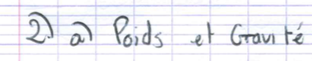 2) a) Poids et Gravité